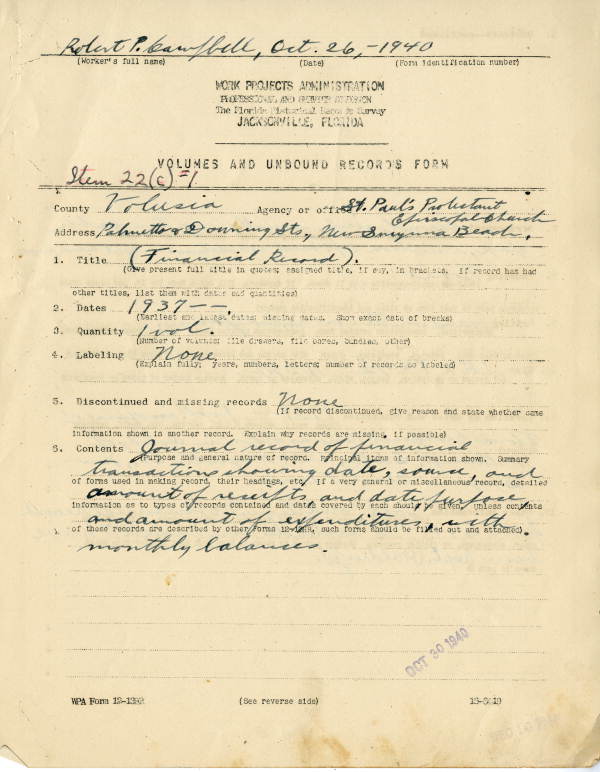 Robert P. Campbell, Oct. 26, - 1940
(Worker's full name) (Date) (Form identification number)
WORK PROJECTS ADMINISTRATION
PROFESSIONAL AND SERVICE DIVISION
The Florida Historical Records Survey
JACKSONVILLE, FLORIDA
VOLUMES AND UNBOUND RECORDS FORM
Item 22(c) #1
County Volusia Agency or office St. Paul's Protestant
Episcopal Church
Address Palmetto & Downing Sts., New Smyrna Beach.
1. Title (Financial Record).
(Give present full title in quotes; assigned title, if any, in brackets. If record has had
other titles, list them with dates and quantities)
2. Dates 1937 — —.
(Earliest and latest dates; missing dates. Show exact date of breaks)
3. Quantity 1 vol.
(Number of volumes; file drawers, file boxes, bundles, other)
4. Labeling None
(Explain fully; years, numbers, letters; number of records so labeled)
5. Discontinued and missing records None
(If record discontinued, give reason and state whether same
information shown in another record. Explain why records are missing, if possible)
6. Contents Journal record of financial
(Purpose and general nature of record. Principal items of information shown. Summary
transactions showing date, source, and
of forms used in making record, their headings, etc. If a very general or miscellaneous record, detailed
amount of receipts, and date, purpose
information as to types of records contained and dates covered by each should be given, unless contents
and amount of expenditures, with
of these records are described by other Forms 12-13HR, such forms should be filled out and attached).
monthly balances.
OCT 30 1940
WPA Form 12-13HR (See reverse side)